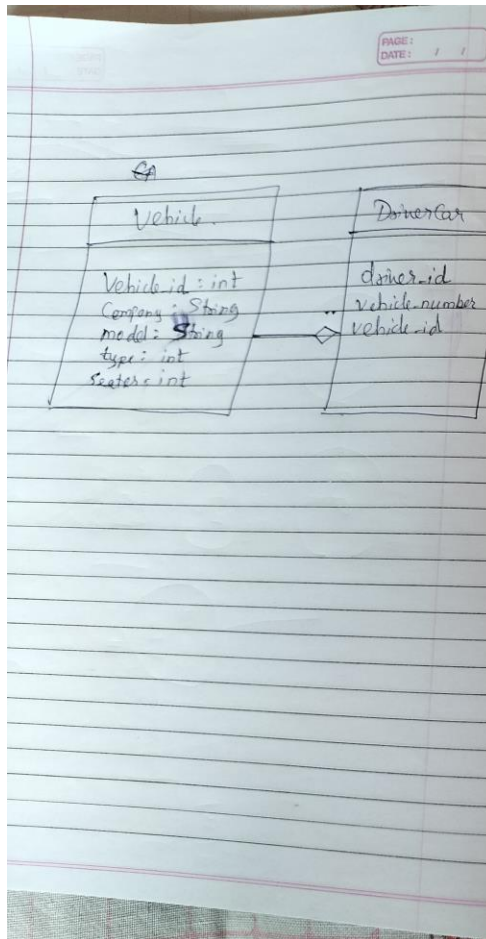 PAGE:
DATE: / /
Vehicle.
Vehicle_id : int
Company : String
model : String
type : int
Seater : int
DriverCar
driver_id
vehicle_number
vehicle_id